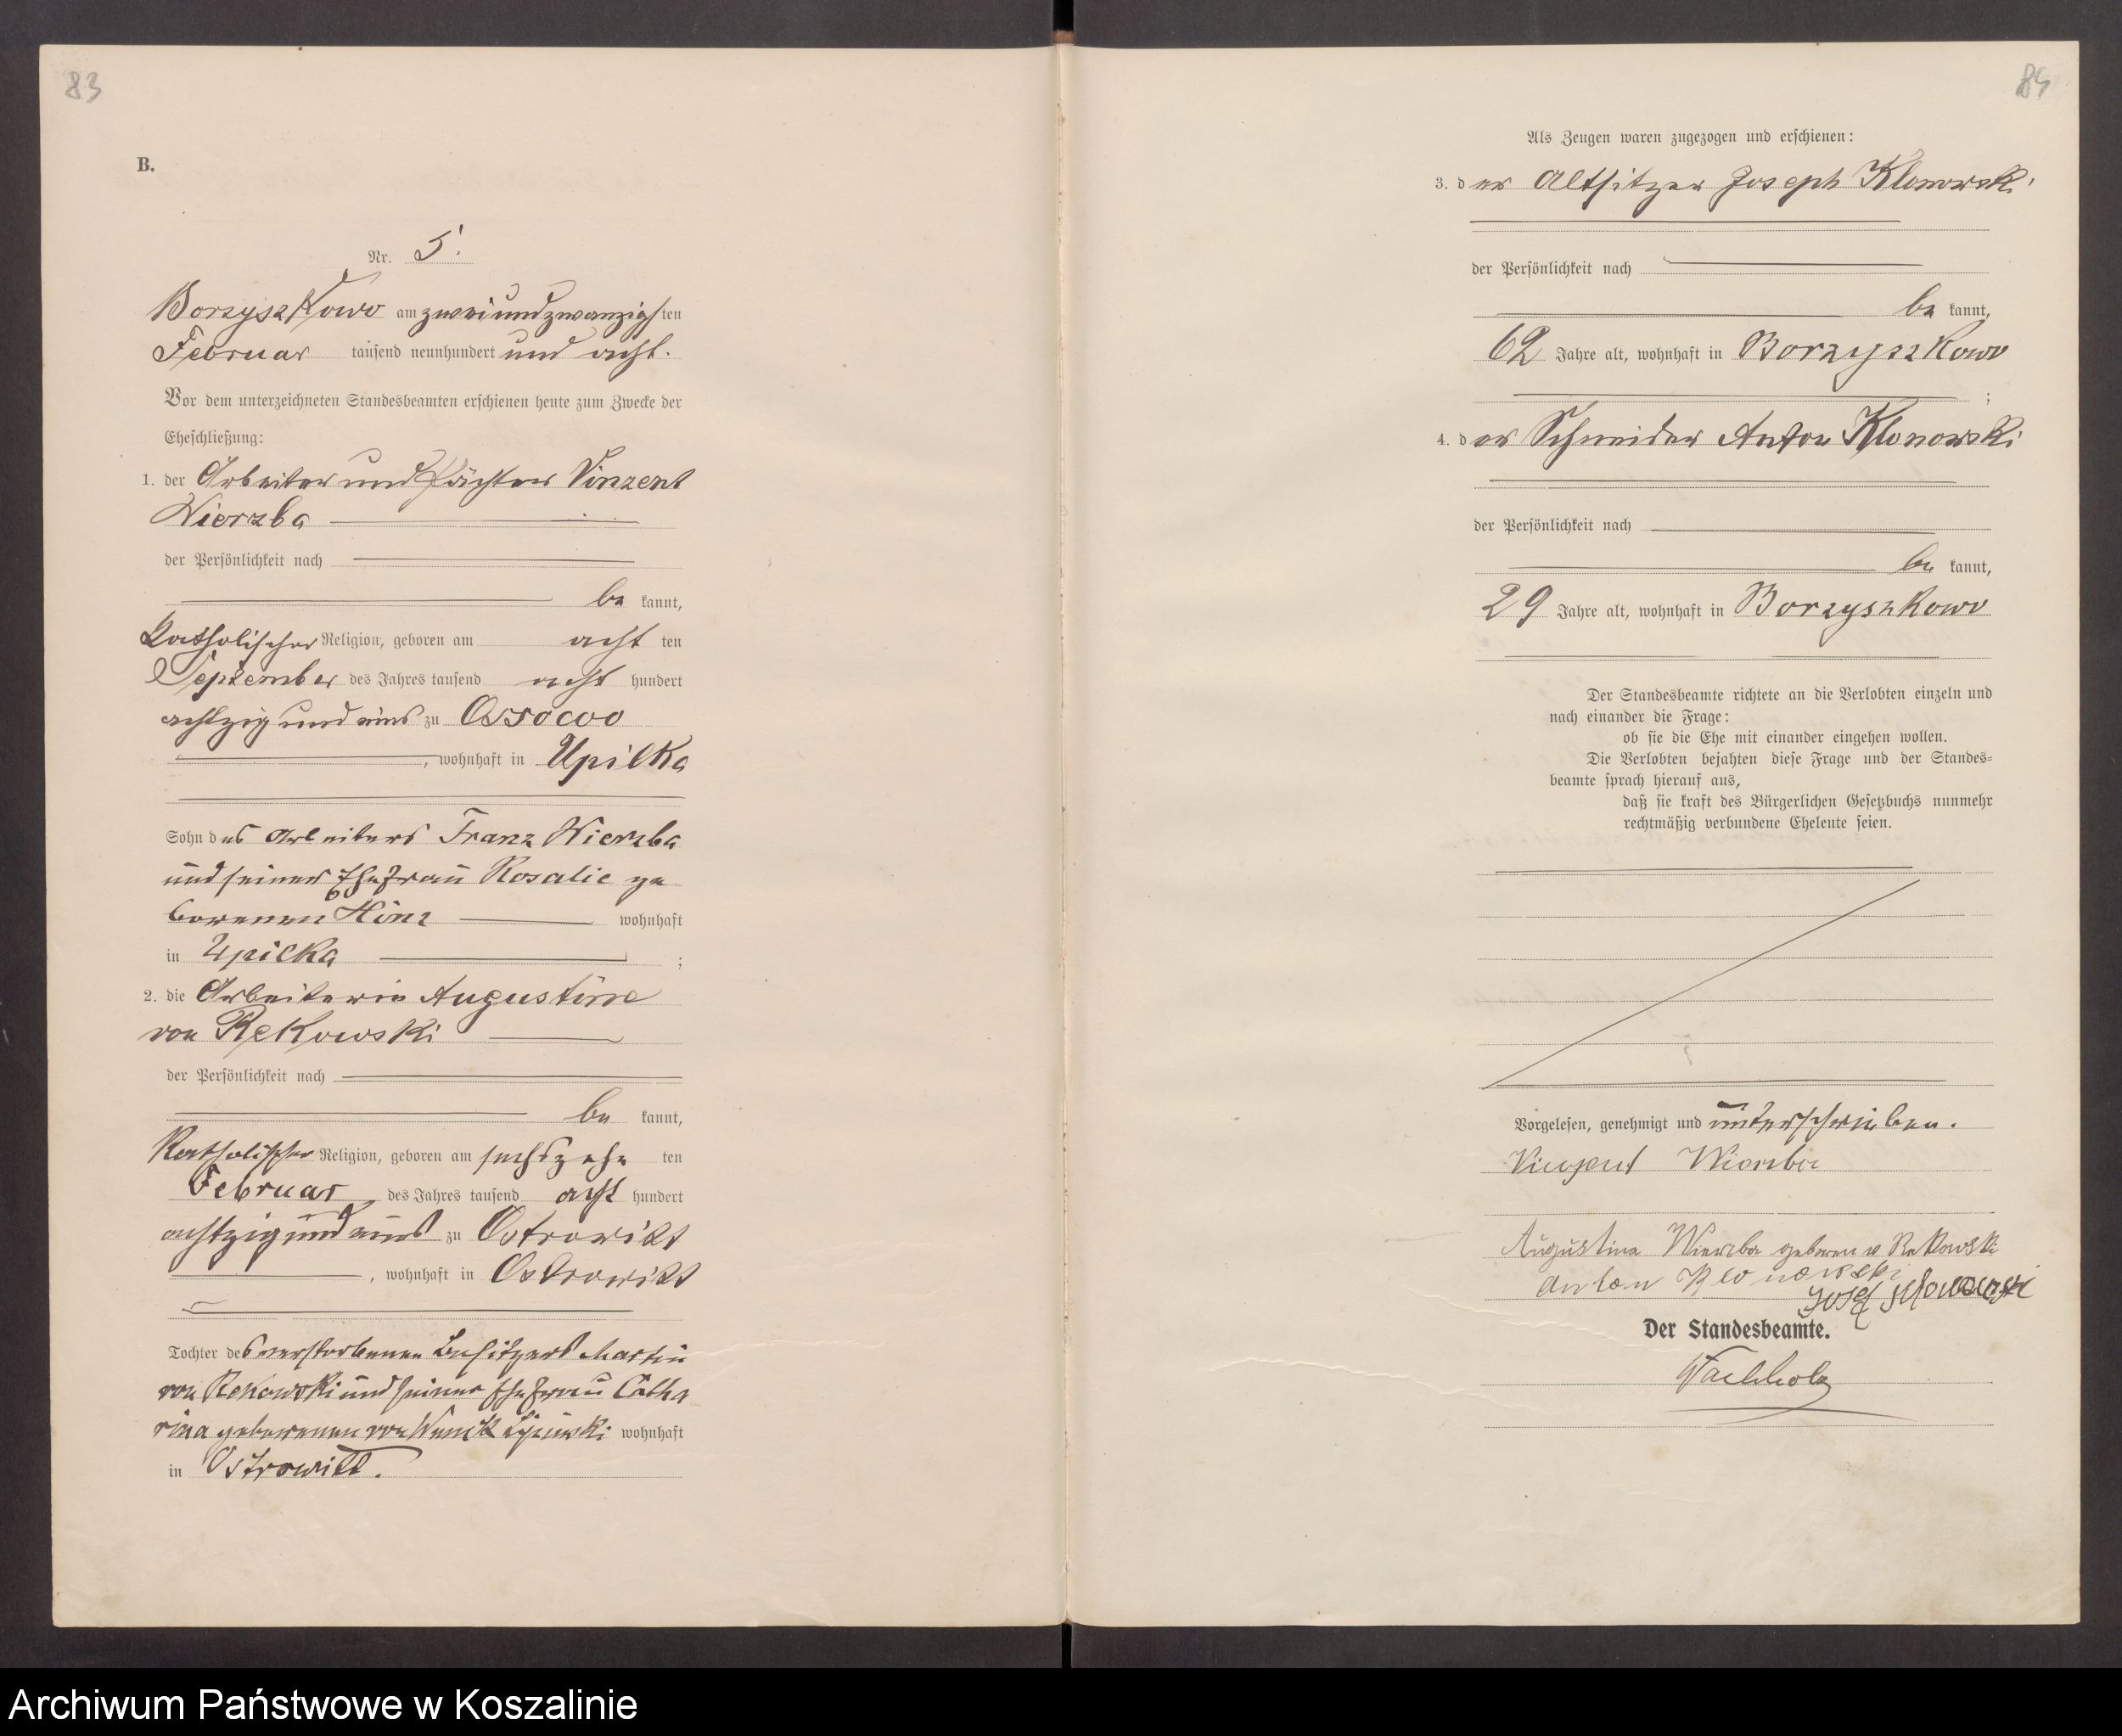 83
B.
Nr. 5.
Borzyszkowo am zweiundzwanzigsten
Februar tausend neunhundert und acht.
Vor dem unterzeichneten Standesbeamten erschienen heute zum Zwecke der
Eheschließung:
1. der Arbeiter und Pächter Vinzent
Wierzba
der Persönlichkeit nach
be kannt,
katholischer Religion, geboren am acht ten
September des Jahres tausend acht hundert
achtzig und eins zu Ossowo
, wohnhaft in Upilka
Sohn des Arbeiters Franz Wierzba
und seiner Ehefrau Rosalie ge
borenen Hinz wohnhaft
in Upilka ;
2. die Arbeiterin Augustine
von Rekowski
der Persönlichkeit nach
be kannt,
katholischer Religion, geboren am sechszehn ten
Februar des Jahres tausend acht hundert
achtzig und eins zu Ostrowitt
, wohnhaft in Ostrowitt
Tochter des verstorbenen Besitzers Martin
von Rekowski und seiner Ehefrau Catha
rina geborenen von Wnuck Lipinski wohnhaft
in Ostrowitt.
84
Als Zeugen waren zugezogen und erschienen:
3. der Altsitzer Joseph Klonowski
der Persönlichkeit nach
be kannt,
62 Jahre alt, wohnhaft in Borzyszkowo
;
4. der Schneider Anton Klonowski
der Persönlichkeit nach
be kannt,
29 Jahre alt, wohnhaft in Borzyszkowo
Der Standesbeamte richtete an die Verlobten einzeln und
nach einander die Frage:
ob sie die Ehe mit einander eingehen wollen.
Die Verlobten bejahten diese Frage und der Standes=
beamte sprach hierauf aus,
daß sie kraft des Bürgerlichen Gesetzbuchs nunmehr
rechtmäßig verbundene Eheleute seien.
Vorgelesen, genehmigt und unterschrieben.
Vinzent Wierzba
Augustina Wierzba geboren v Rekowski
Anton Klonowski
Josef Klonowski
Der Standesbeamte.
Wachholz
Archiwum Państwowe w Koszalinie